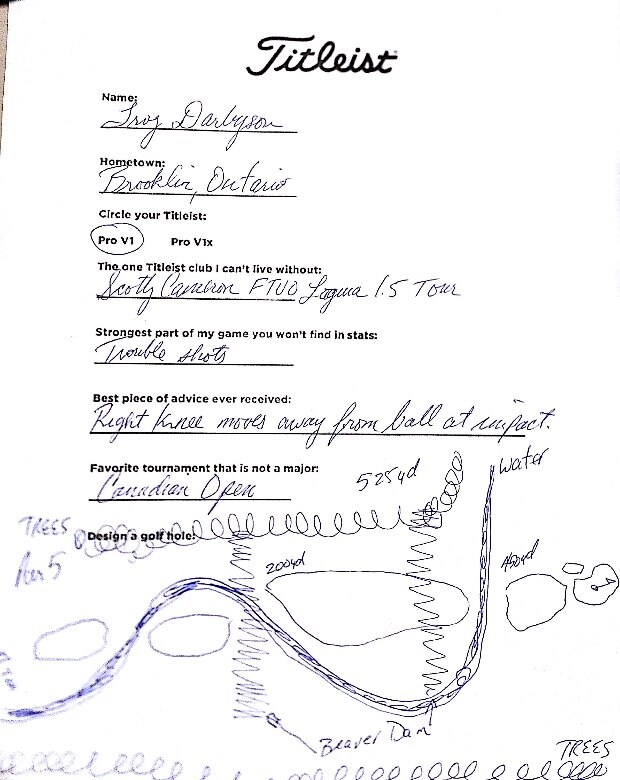 Titleist
Name:
Troy Darbyson
Hometown:
Brooklin, Ontario
Circle your Titleist:
Pro V1 Pro V1x
The one Titleist club I can't live without:
Scotty Cameron FTUO Laguna 1.5 Tour
Strongest part of my game you won't find in stats:
Trouble shots
Best piece of advice ever received:
Right knee moves away from ball at impact.
Favorite tournament that is not a major:
Canadian Open
525yd
water
TREES
Design a golf hole:
Par 5
200yd
450yd
Beaver Dam
TREES